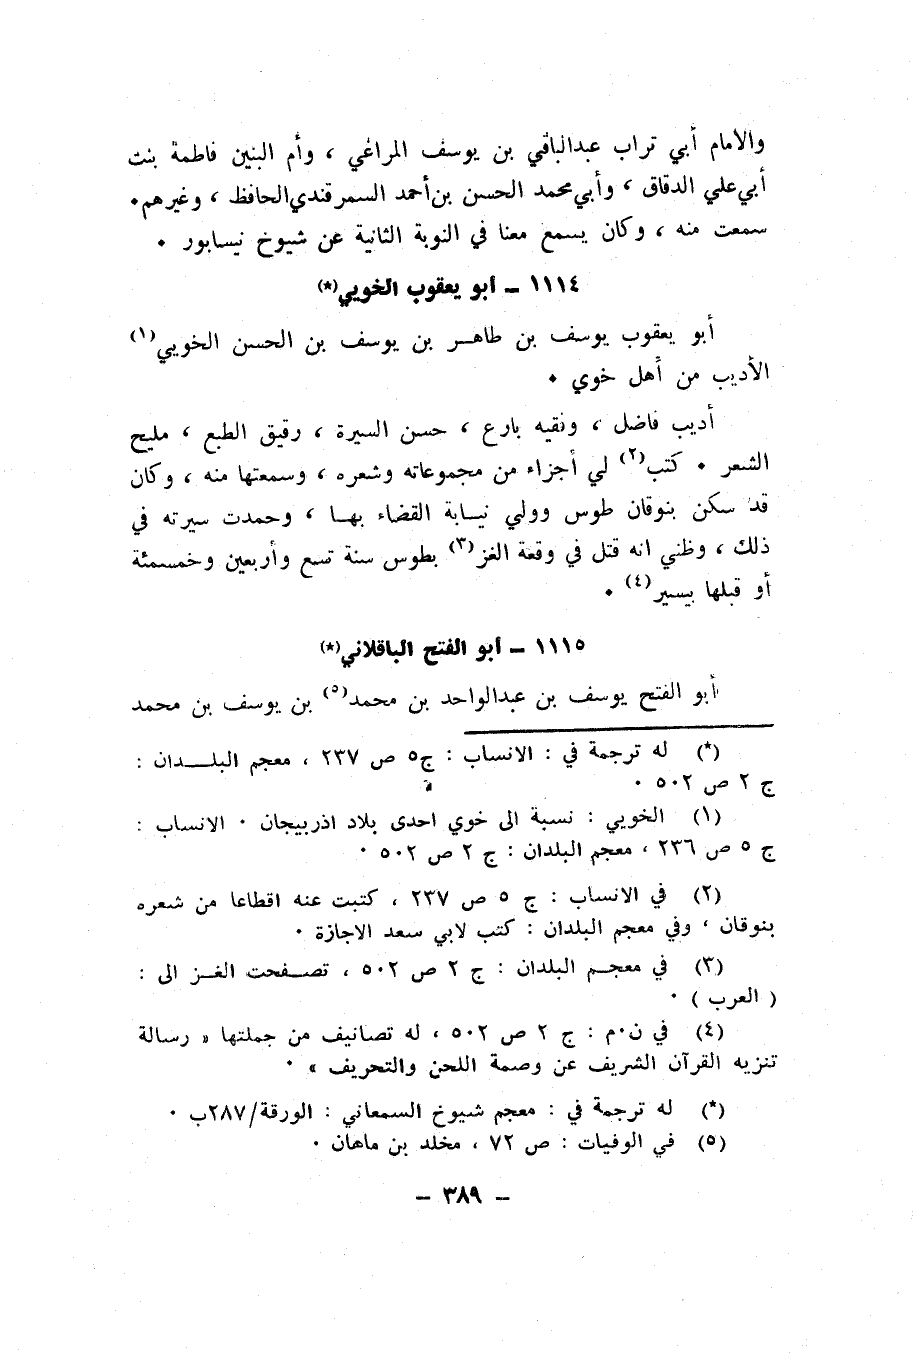 والامام أبي تراب عبدالباقي بن يوسف المراغي ، وأم البنين فاطمة بنت
أبي علي الدقاق ، وأبي محمد الحسن بن أحمد السمرقندي الحافظ ، وغيرهم .
سمعت منه ، وكان يسمع معنا في النوبة الثانية عن شيوخ نيسابور .
١١١٤ ـ أبو يعقوب الخويي(*)
أبو يعقوب يوسف بن طاهر بن يوسف بن الحسن الخويي(١)
الأديب من أهل خوي .
أديب فاضل ، وفقيه بارع ، حسن السيرة ، رقيق الطبع ، مليح
الشعر . كتب(٢) لي أجزاء من مجموعاته وشعره ، وسمعتها منه ، وكان
قد سكن بنوقان طوس وولي نيابة القضاء بها ، وحمدت سيرته في
ذلك ، وظني انه قتل في وقعة الغز(٣) بطوس سنة تسع وأربعين وخمسمئة
أو قبلها بيسير(٤) .
١١١٥ ـ أبو الفتح الباقلاني(*)
أبو الفتح يوسف بن عبدالواحد بن محمد(٥) بن يوسف بن محمد
(*) له ترجمة في : الانساب : ج٥ ص ٢٣٧ ، معجم البلدان :
ج ٢ ص ٥٠٢ .
(١) الخويي : نسبة الى خوي احدى بلاد اذربيجان . الانساب :
ج ٥ ص ٢٣٦ ، معجم البلدان : ج ٢ ص ٥٠٢ .
(٢) في الانساب : ج ٥ ص ٢٣٧ ، كتبت عنه اقطاعا من شعره
بنوقان ، وفي معجم البلدان : كتب لابي سعد الاجازة .
(٣) في معجم البلدان : ج ٢ ص ٥٠٢ ، تصفحت الغز الى :
( العرب ) .
(٤) في ن.م : ج ٢ ص ٥٠٢ ، له تصانيف من جملتها « رسالة
تنزيه القرآن الشريف عن وصمة اللحن والتحريف » .
(*) له ترجمة في : معجم شيوخ السمعاني : الورقة/٢٨٧ب .
(٥) في الوفيات : ص ٧٢ ، مخلد بن ماهان .
ـ ٣٨٩ ـ